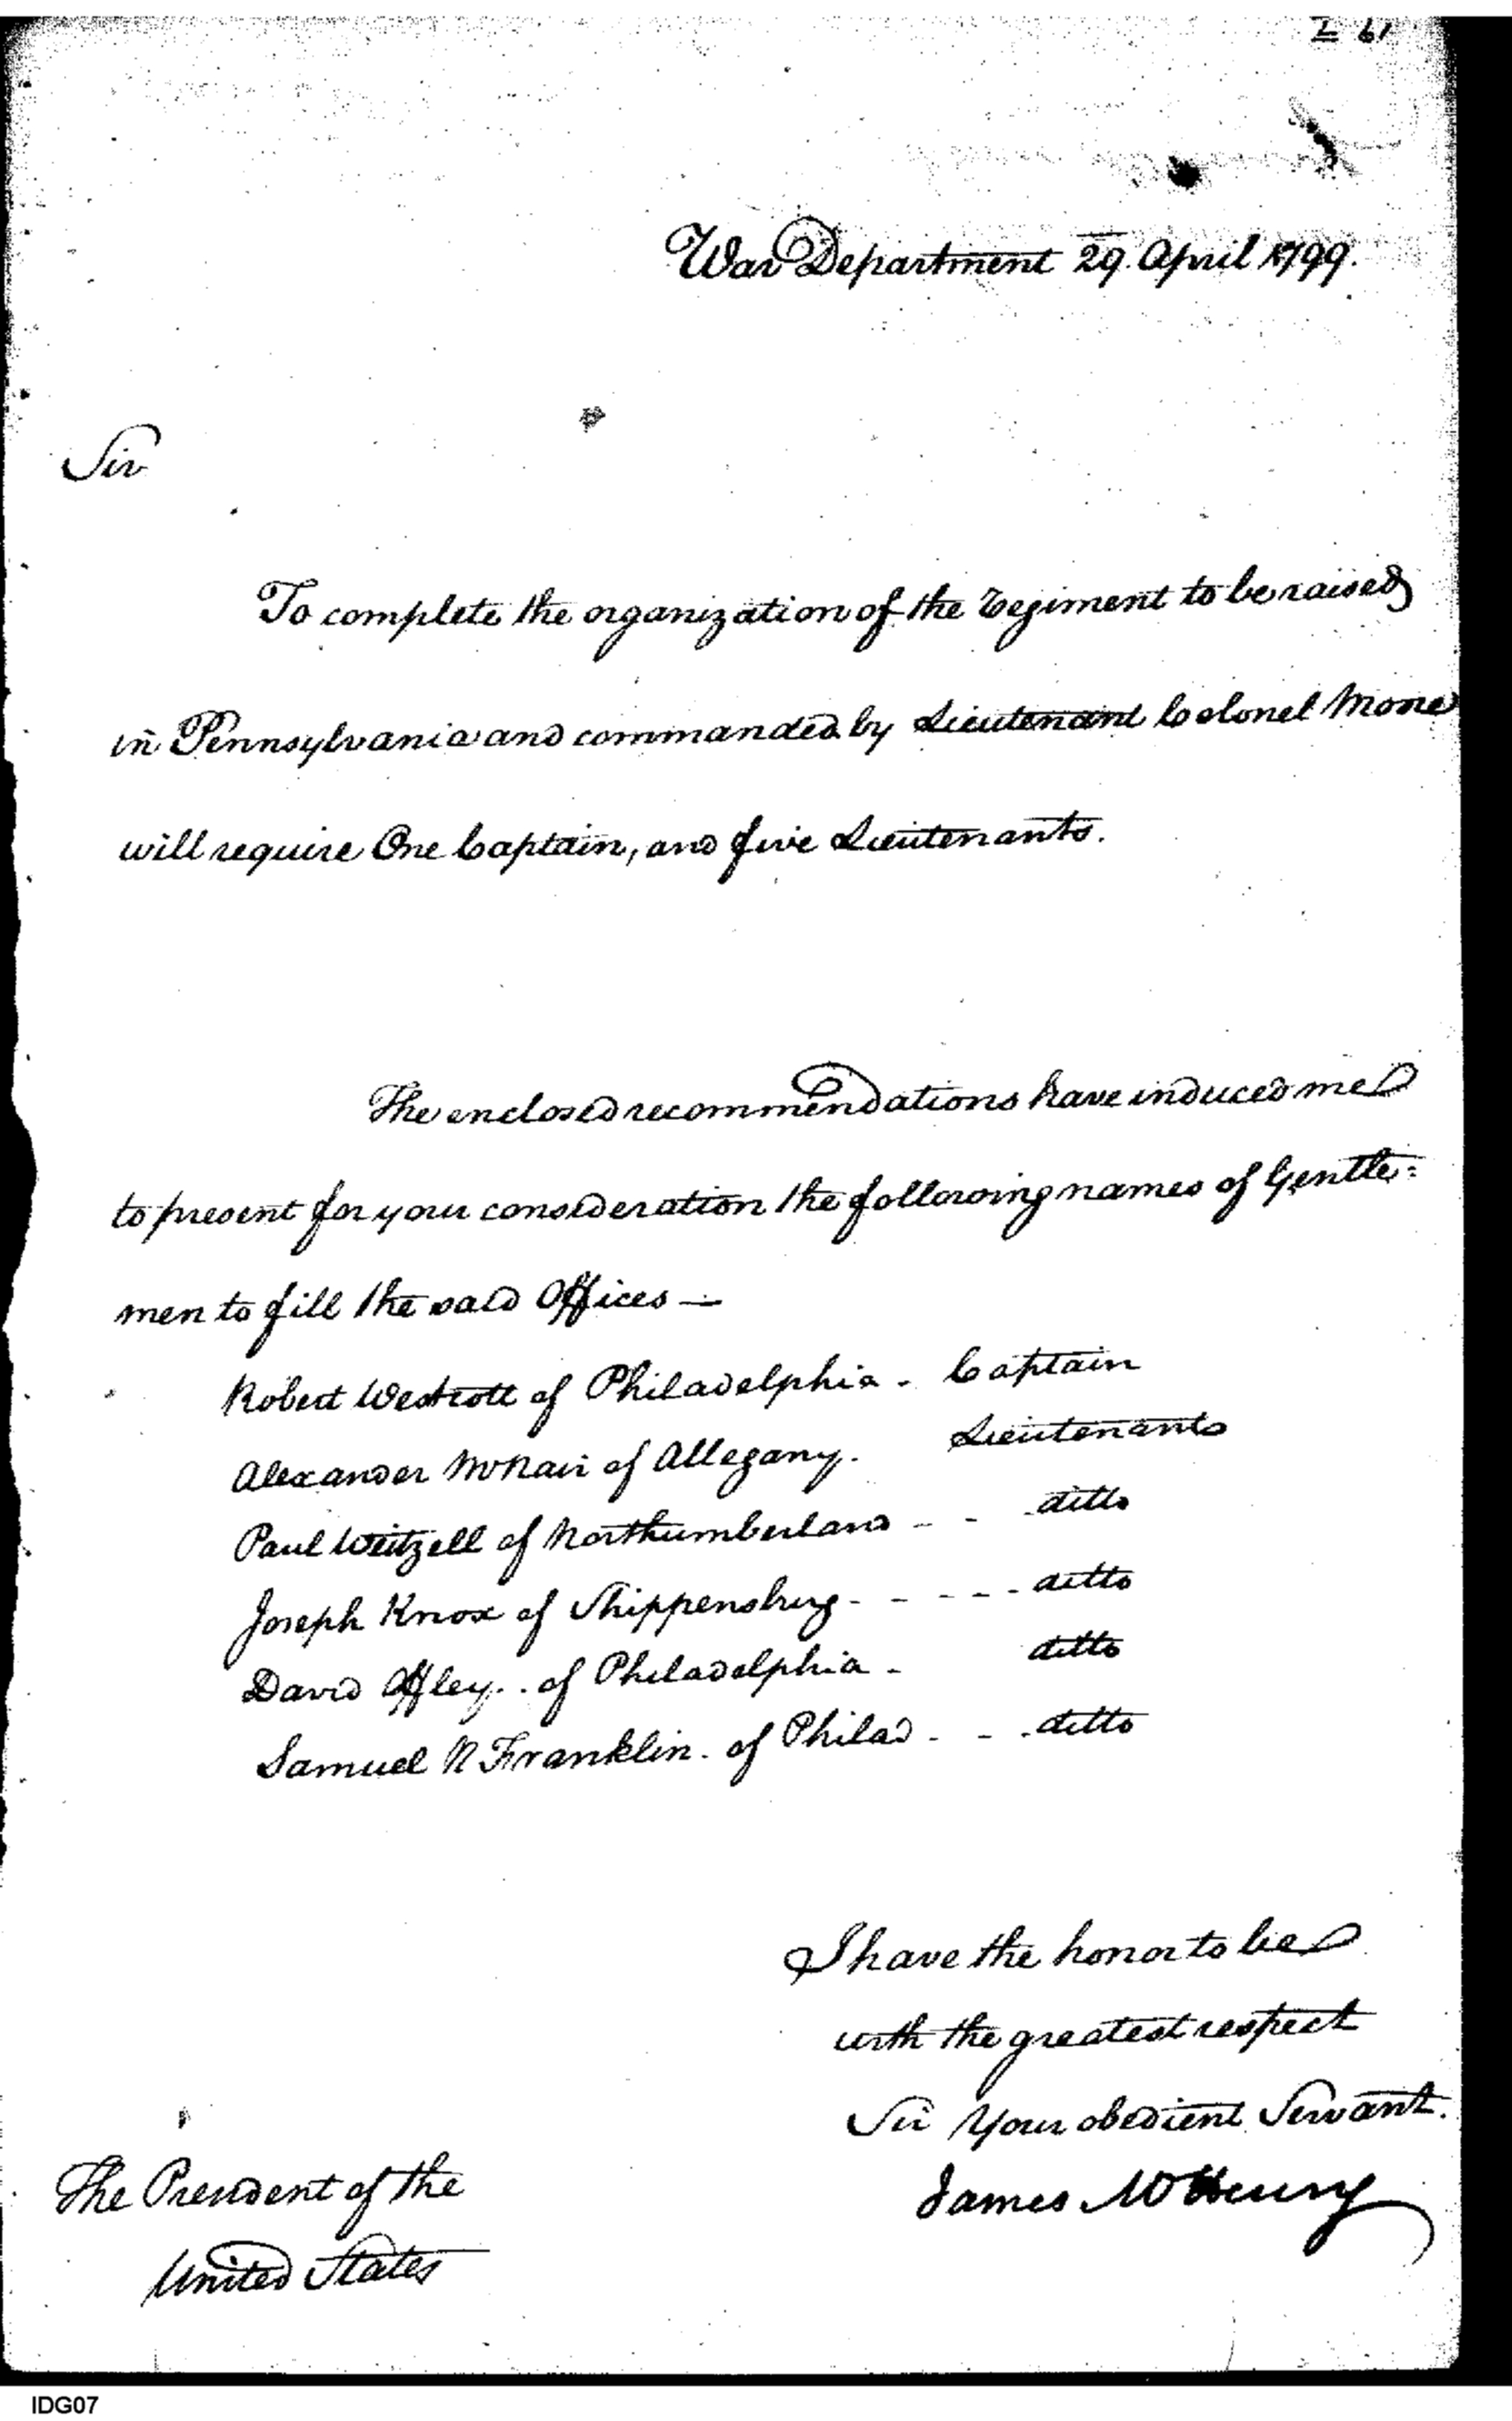 I 61
War Department 29 April 1799.
Sir
To complete the organization of the regiment to be raised
in Pennsylvania and commanded by Lieutenant Colonel Moore
will require One Captain, and five Lieutenants.
The enclosed recommendations have induced me
to present for your consideration the following names of Gentle=
men to fill the said Offices —
Robert Westcott of Philadelphia - Captain
Alexander McNair of Allegany. Lieutenants
Paul Weitzell of Northumberland - - ditto
Joseph Knox of Shippensburg - - - - ditto
David Offley. . of Philadelphia - ditto
Samuel R Franklin. of Philad - - - ditto
I have the honor to be
with the greatest respect
Sir Your obedient Servant.
James McHenry
The President of the
United States
IDG07